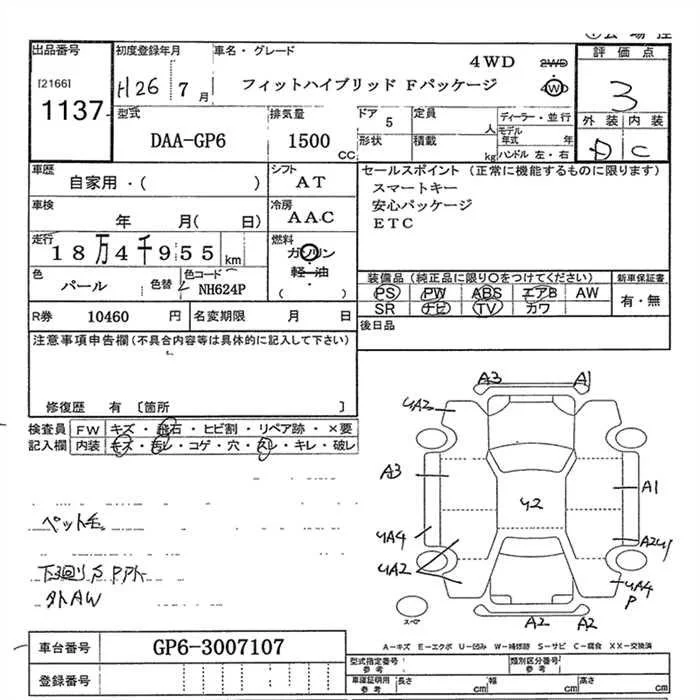 出品番号 初度登録年月 車名・グレード 4WD 2WD 評価点
[2166] H26 7月 フィットハイブリッド Fパッケージ 4WD 3
1137 型式 排気量 ドア 定員 ディーラー・並行 外装 内装
DAA-GP6 1500 CC 5 人 モデル年式 年 D C
形状 積載 kg ハンドル 左・右
車歴 シフト セールスポイント (正常に機能するものに限ります)
自家用・( ) AT スマートキー
車検 冷房 安心パッケージ
年 月( 日) AAC ETC
走行 燃料
18万4千955 km ガソリン
色 色替 色コード 軽油 装備品(純正品に限り○をつけてください) 新車保証書
パール NH624P ( ) PS PW ABS エアB AW 有・無
R券 10460 円 名変期限 月 日 SR ナビ TV カワ
注意事項申告欄(不具合内容等は具体的に記入して下さい) 後日品
修復歴 有 [箇所 ]
検査員 FW キズ・飛石・ヒビ割・リペア跡・×要
記入欄 内装 キズ・汚レ・コゲ・穴・スレ・キレ・破レ
A3 A1
UA2
A3 A1
U2
UA4 A2U1
UA2 UA4
P
A2 A2
スペア
ペット毛
下回りSPPK
外AW
A-キズ E-エクボ U-凹み W-補修跡 S-サビ C-腐食 XX-交換済
車台番号 GP6-3007107
型式指定番号 参考 類別区分番号 参考
登録番号 車庫証明用 参考 長さ cm 幅 cm 高さ cm